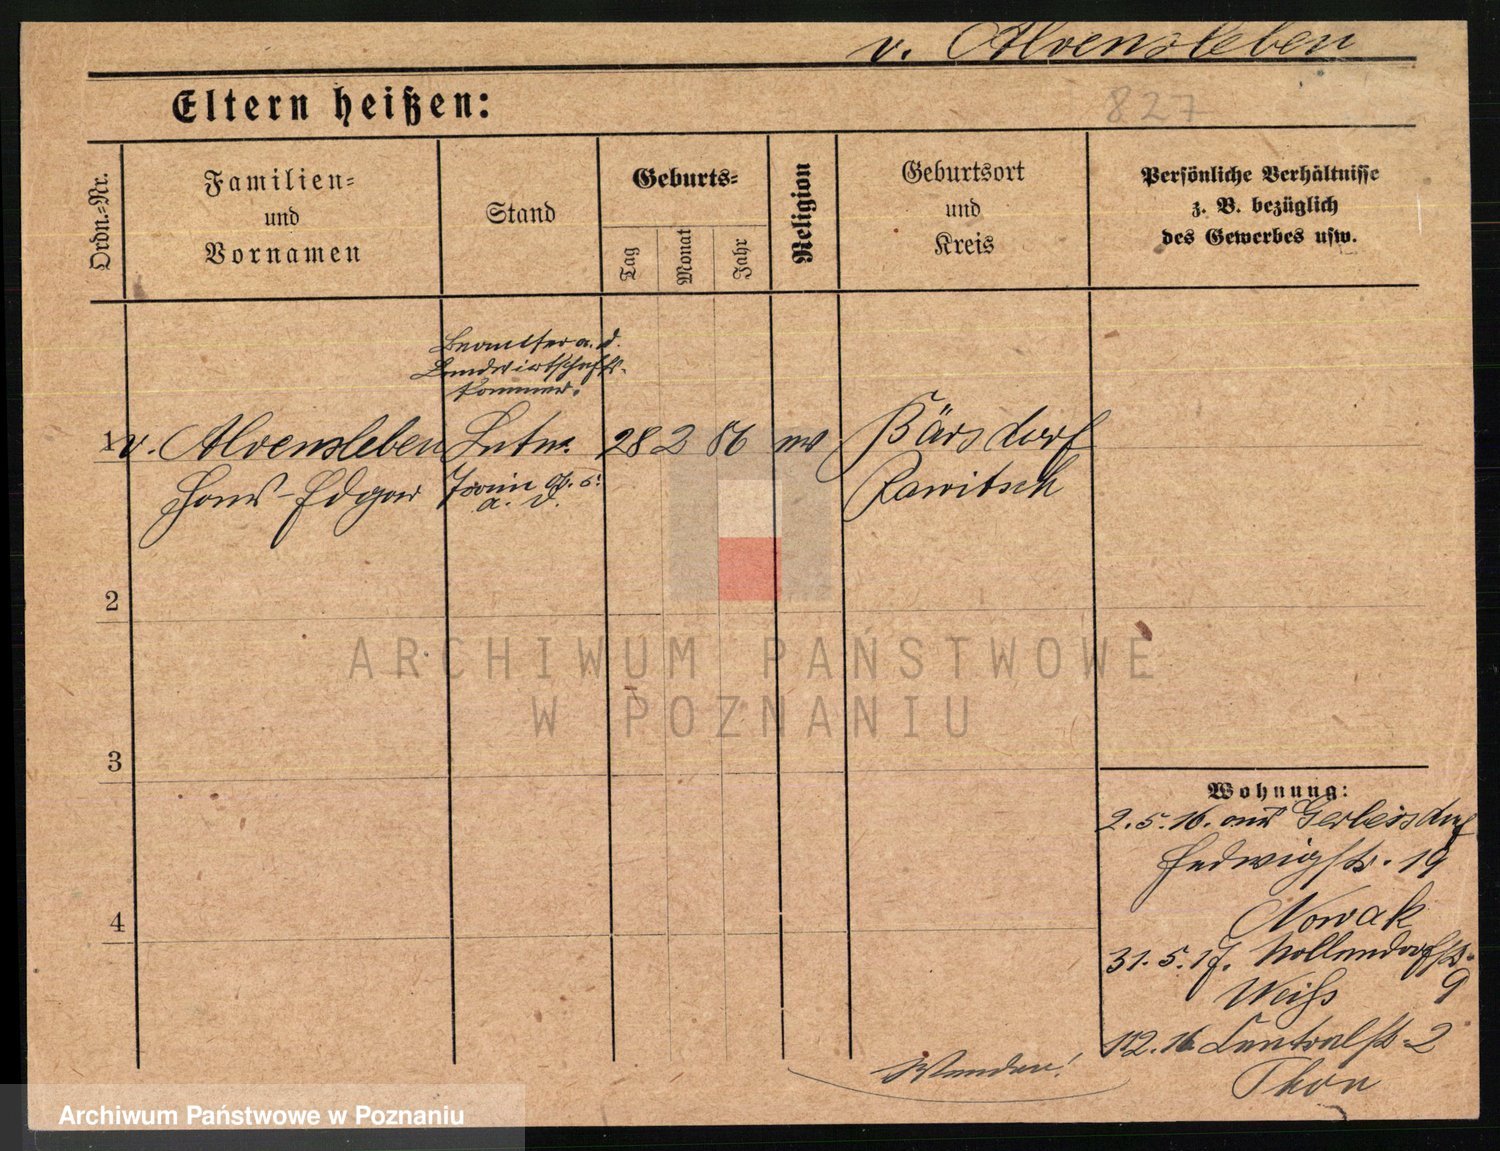 v. Alvensleben
Eltern heißen:
827
Ordn.=Nr.
Familien=
und
Vornamen
Stand
Geburts=
Tag
Monat
Jahr
Religion
Geburtsort
und
Kreis
Persönliche Verhältnisse
z. B. bezüglich
des Gewerbes usw.
Beamter a. d.
Landwirtschafts-
kammer.
1 v. Alvensleben Lutn. 28 2 86 Bärsdorf
Hans-Edgar a. D. Rawitsch
2
3
4
ARCHIWUM PAŃSTWOWE
W POZNANIU
Wohnung:
2.5.16. aus Gerbersdorf
Hedwigstr. 19
Nowak
31.5.17. Nollendorfstr. 9
Weiss
12.16. Centralstr. 2
Thon
Wenden!
Archiwum Państwowe w Poznaniu